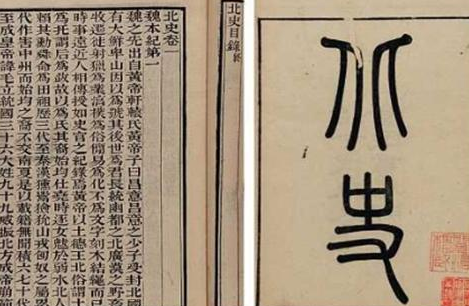 北史
北史目錄
北史卷一
魏本紀第一
魏之先出自黃帝軒轅氏黃帝子曰昌意昌意之少子受封北國
有大鮮卑山因以爲號其後世爲君長統幽都之北廣漠之野畜
牧遷徙射獵爲業淳樸爲俗簡易爲化不爲文字刻木結繩而已
時事遠近人相傳授如史官之紀錄焉黃帝以土德王北俗謂土
爲托謂后爲跋故以爲氏其裔始均仕堯時逐女魃於弱水北人
賴其勳舜命爲田祖歷三代至秦漢獯鬻獫狁山戎匈奴之屬累
代作害中州而始均之裔不交南夏是以載籍無聞積六七十代
至成皇帝諱毛立統國三十六大姓九十九威振北方成帝崩